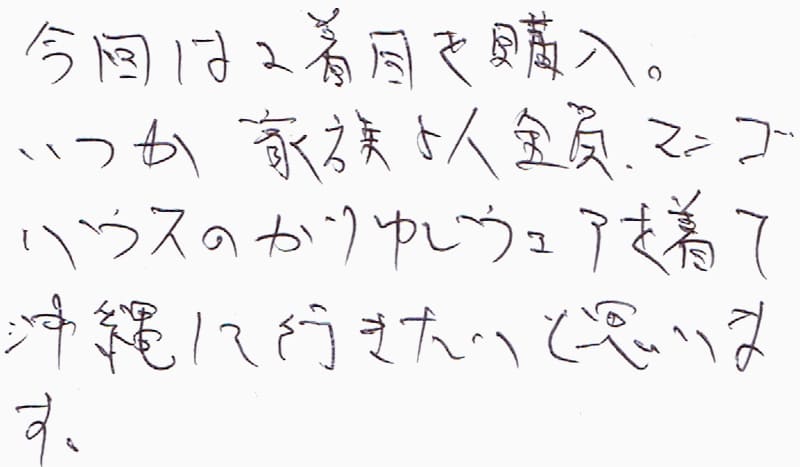 今回は2着目を購入。
いつか家族4人全員、マンゴ
ハウスのかりゆしウェアを着て
沖縄に行きたいと思いま
す。